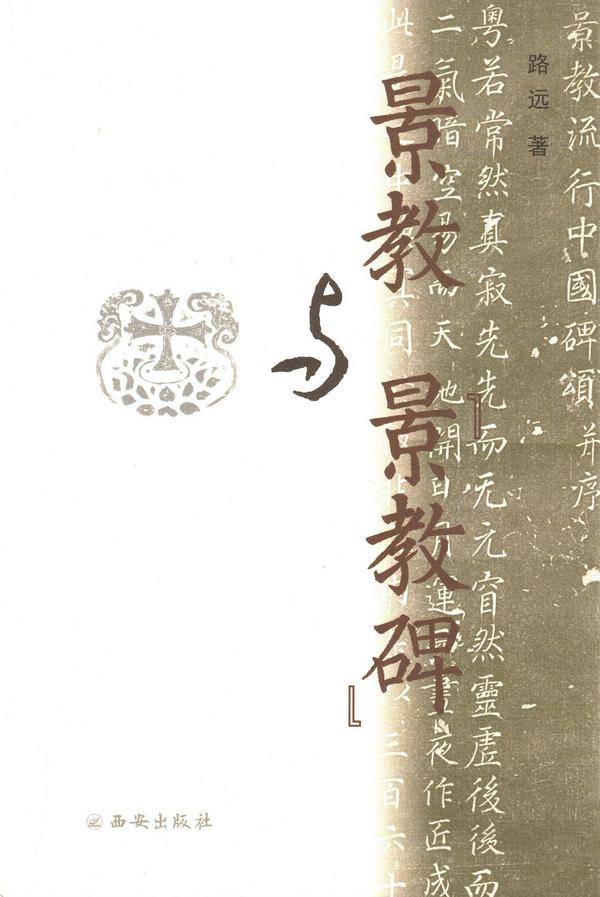 景教流行中國碑頌并序
粵若常然真寂先先而无元窅然靈虛後後而
二氣暗空易而天地開日月運 晝夜作匠成
三百六十
路远 著
景教
与
『景教碑』
西安出版社